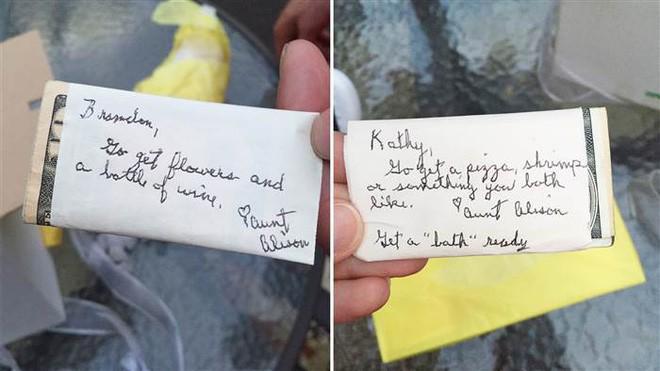 Brandon,
Go get flowers and
a bottle of wine.
♡ Aunt
Alison
Kathy,
Go get a pizza, shrimp
or something you both
like. ♡ Aunt Alison
Get a "bath" ready